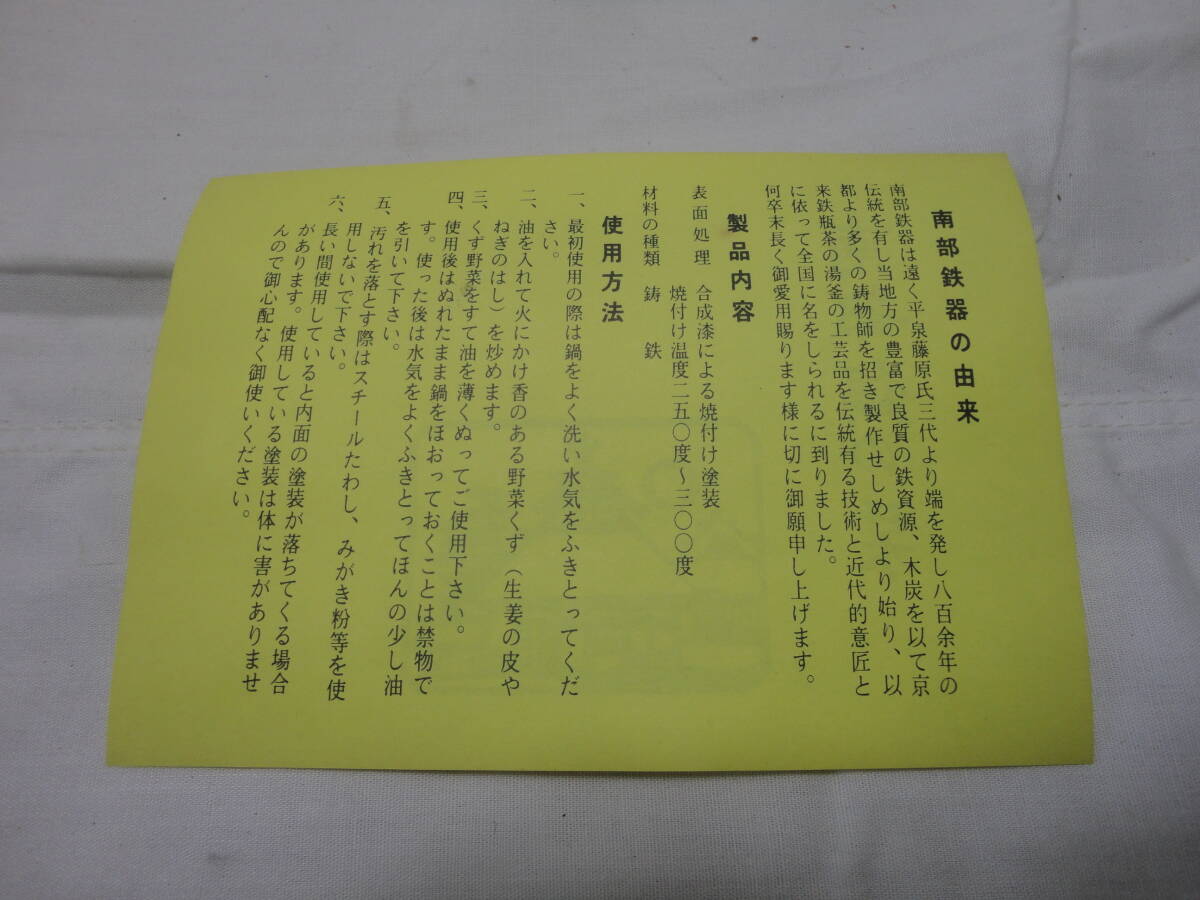 南部鉄器の由来
南部鉄器は遠く平泉藤原氏三代より端を発し八百余年の
伝統を有し当地方の豊富で良質の鉄資源、木炭を以て京
都より多くの鋳物師を招き製作せしめしより始り、以
来鉄瓶茶の湯釜の工芸品を伝統有る技術と近代的意匠と
に依って全国に名をしられるに到りました。
何卒末長く御愛用賜ります様に切に御願申し上げます。
製品内容
表面処理 合成漆による焼付け塗装
焼付け温度二五〇度～三〇〇度
材料の種類 鋳鉄
使用方法
一、最初使用の際は鍋をよく洗い水気をふきとってくだ
さい。
二、油を入れて火にかけ香のある野菜くず（生姜の皮や
ねぎのはし）を炒めます。
三、くず野菜をすて油を薄くぬってご使用下さい。
四、使用後はぬれたまま鍋をほおっておくことは禁物で
す。使った後は水気をよくふきとってほんの少し油
を引いて下さい。
五、汚れを落とす際はスチールたわし、みがき粉等を使
用しないで下さい。
六、長い間使用していると内面の塗装が落ちてくる場合
があります。使用している塗装は体に害がありませ
んので御心配なく御使いください。